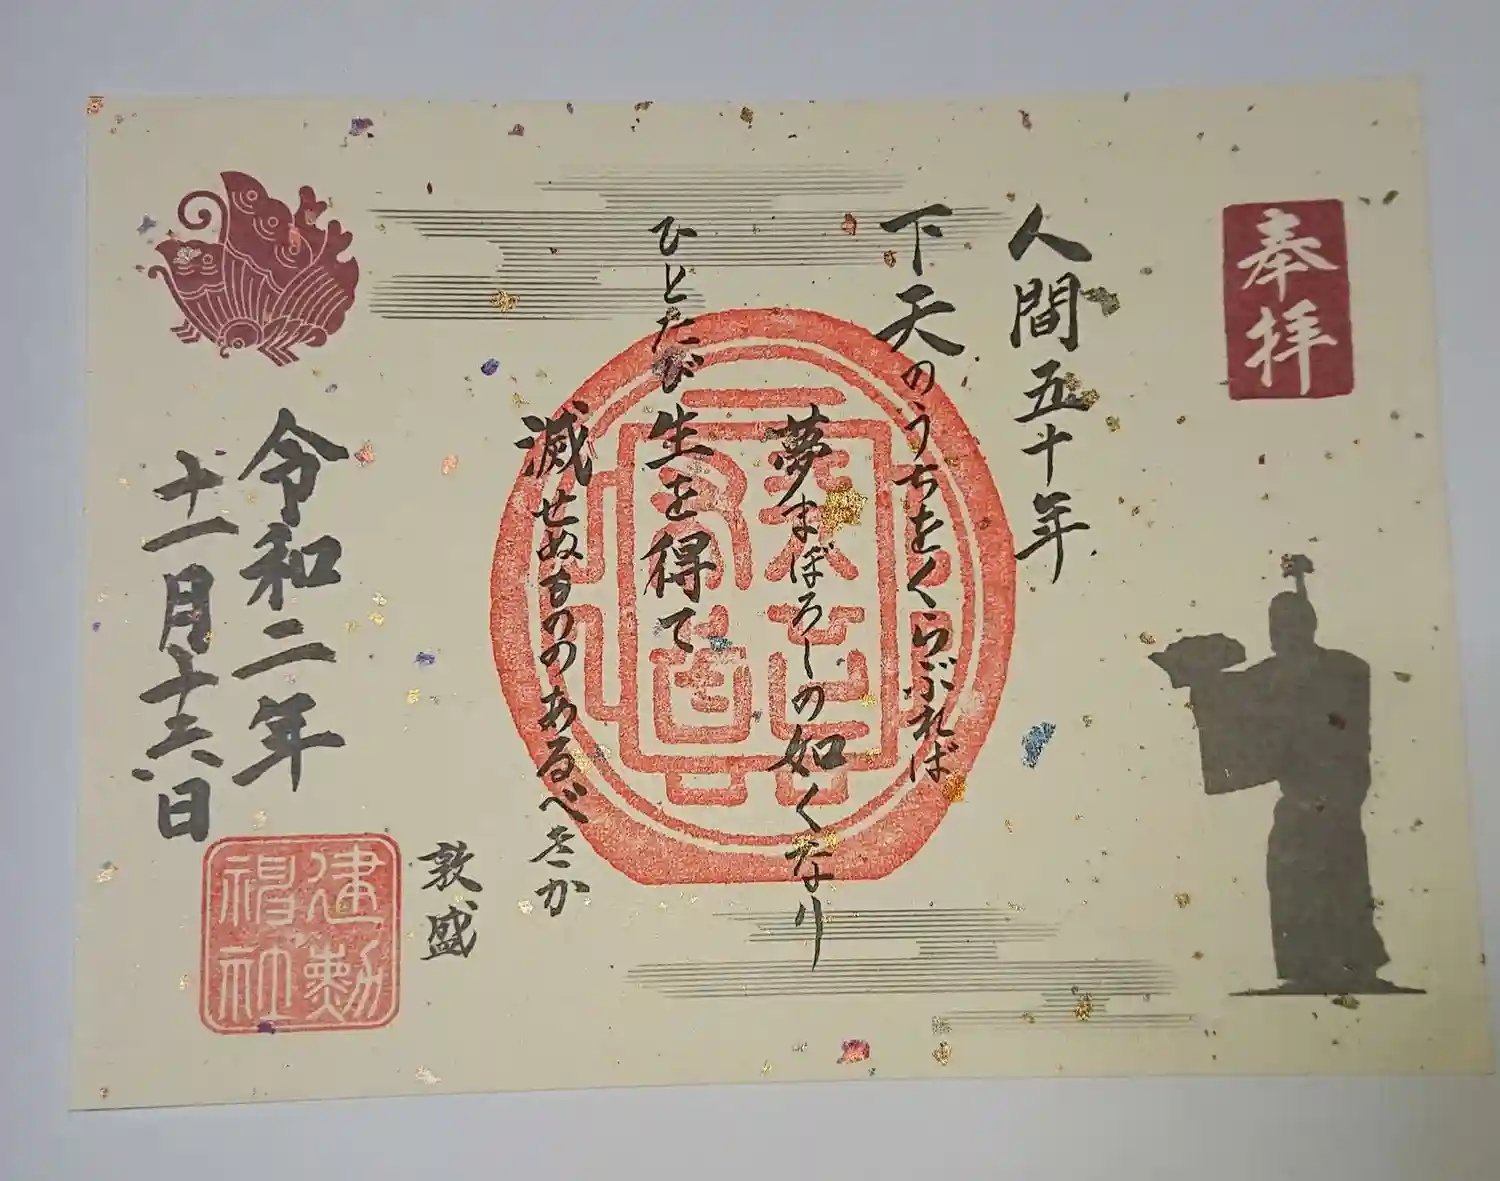 奉拝
人間五十年
下天のうちをくらぶれば
夢まぼろしの如くなり
ひとたび生を得て
滅せぬもののあるべきか
敦盛
令和二年
十一月十六日
建勲
神社
天下
布武